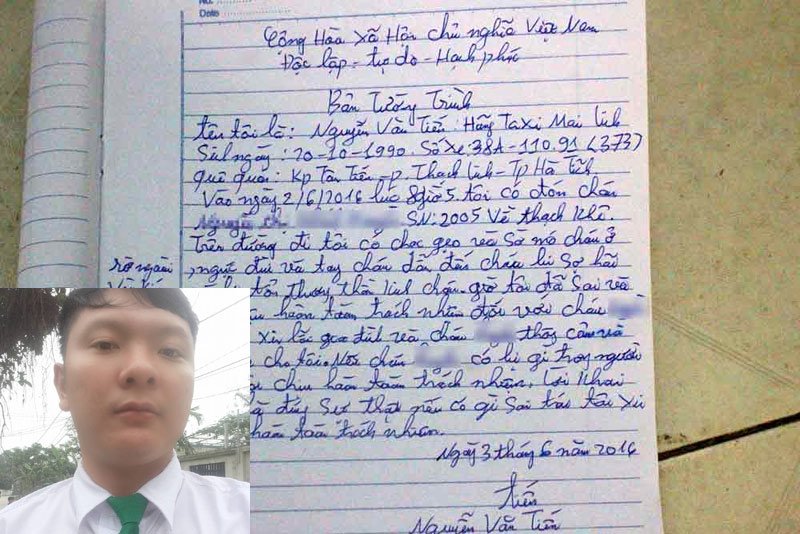 No. ..............
Date ..............
Cộng Hòa Xã Hội chủ nghĩa Việt Nam
Độc lập - tự do - Hạnh phúc
Bản Tường Trình
tên tôi là: Nguyễn Văn Tiến: Hãng Taxi Mai linh
Sinh ngày: 20-10-1990 Số Xe: 38A-110.91 (373)
quê quán: Kp Tân Tiến - p. Thạch linh - Tp Hà Tĩnh
Vào ngày 2/6/2016 lúc 8giờ5. tôi có đón cháu
SN: 2005 Về thạch Khê.
Trên đường đi tôi có chọc gẹo và Sờ mó cháu ở
ngực đùi và tay chân dẫn đến cháu bị Sợ hãi
rờ ngoài
tổn thương thân giờ tôi đã Sai và
hoàn toàn trách nhiệm đối với cháu
Xin lỗi gia đình và cháu thông cảm và
cho tôi. Nếu cháu có bị gì trong người
chịu hoàn toàn trách nhiệm. lời khai
là đúng Sự thật nếu có gì Sai trái tôi xin
hoàn toàn trách nhiệm.
Ngày 3 tháng 6 năm 2016
tiến
Nguyễn Văn Tiến